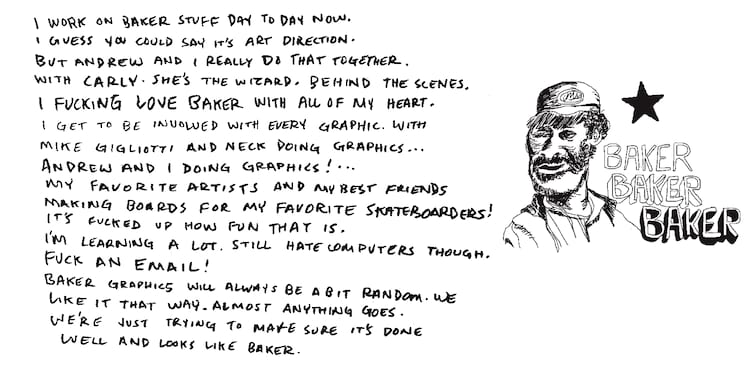 I WORK ON BAKER STUFF DAY TO DAY NOW.
I GUESS YOU COULD SAY IT'S ART DIRECTION.
BUT ANDREW AND I REALLY DO THAT TOGETHER.
WITH CARLY. SHE'S THE WIZARD. BEHIND THE SCENES.
I FUCKING LOVE BAKER WITH ALL OF MY HEART.
I GET TO BE INVOLVED WITH EVERY GRAPHIC. WITH
MIKE GIGLIOTTI AND NECK DOING GRAPHICS...
ANDREW AND I DOING GRAPHICS!...
MY FAVORITE ARTISTS AND MY BEST FRIENDS
MAKING BOARDS FOR MY FAVORITE SKATEBOARDERS!
IT'S FUCKED UP HOW FUN THAT IS.
I'M LEARNING A LOT. STILL HATE COMPUTERS THOUGH.
FUCK AN EMAIL!
BAKER GRAPHICS WILL ALWAYS BE A BIT RANDOM. WE
LIKE IT THAT WAY. ALMOST ANYTHING GOES.
WE'RE JUST TRYING TO MAKE SURE IT'S DONE
WELL AND LOOKS LIKE BAKER.
BAKER
BAKER
BAKER